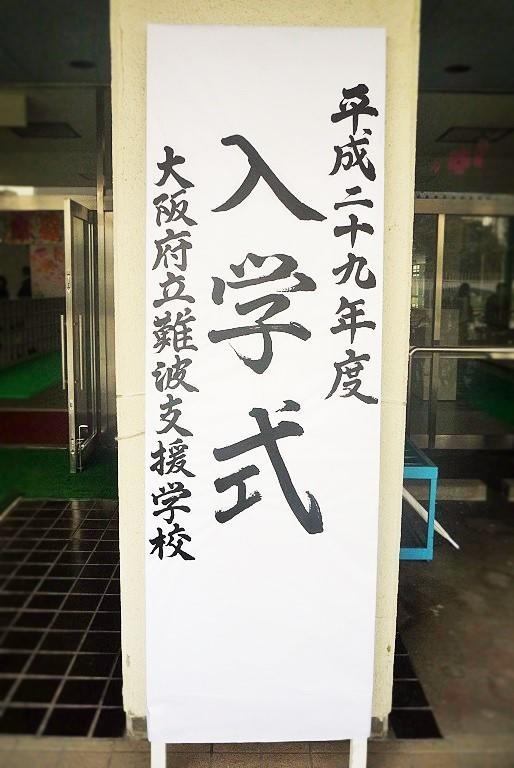 平成二十九年度
入学式
大阪府立難波支援学校